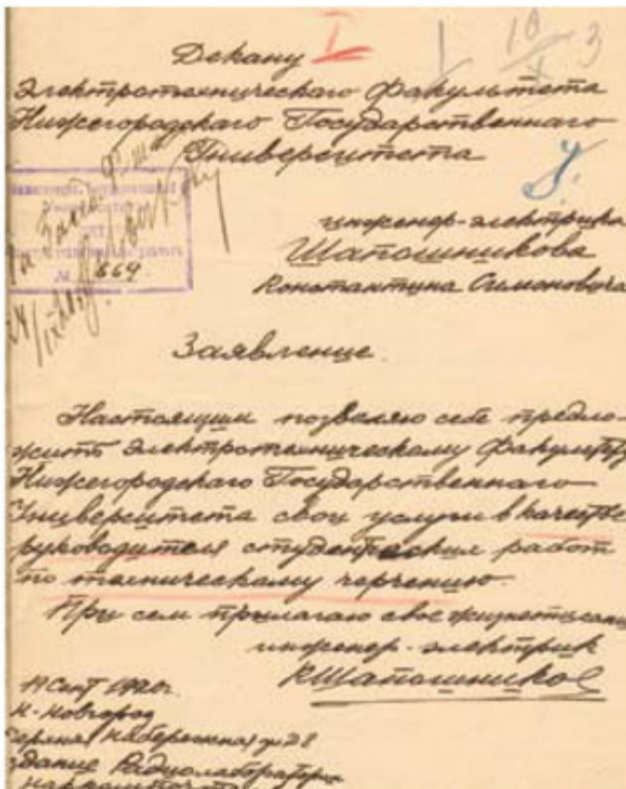 Декану I
Электротехническаго Факультета
Нижегородскаго Государственнаго
Университета
инженер-электрика
Шапошникова
Константина Симоновича
№ 669
Заявление.
Настоящим позволяю себе предло-
жить Электротехническому Факультету
Нижегородскаго Государственнаго
Университета свои услуги в качестве
руководителя студенческих работ
по техническому черчению.
При сем прилагаю свое жизнеописание
инженер-электрик
КШапошников
Сент 1920г.
Н-Новгород
набережная
здание Радиолаборатории